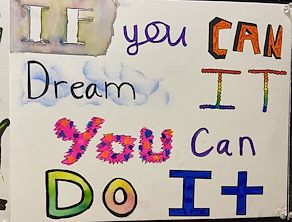 IF you CAN
Dream IT
You Can
Do It